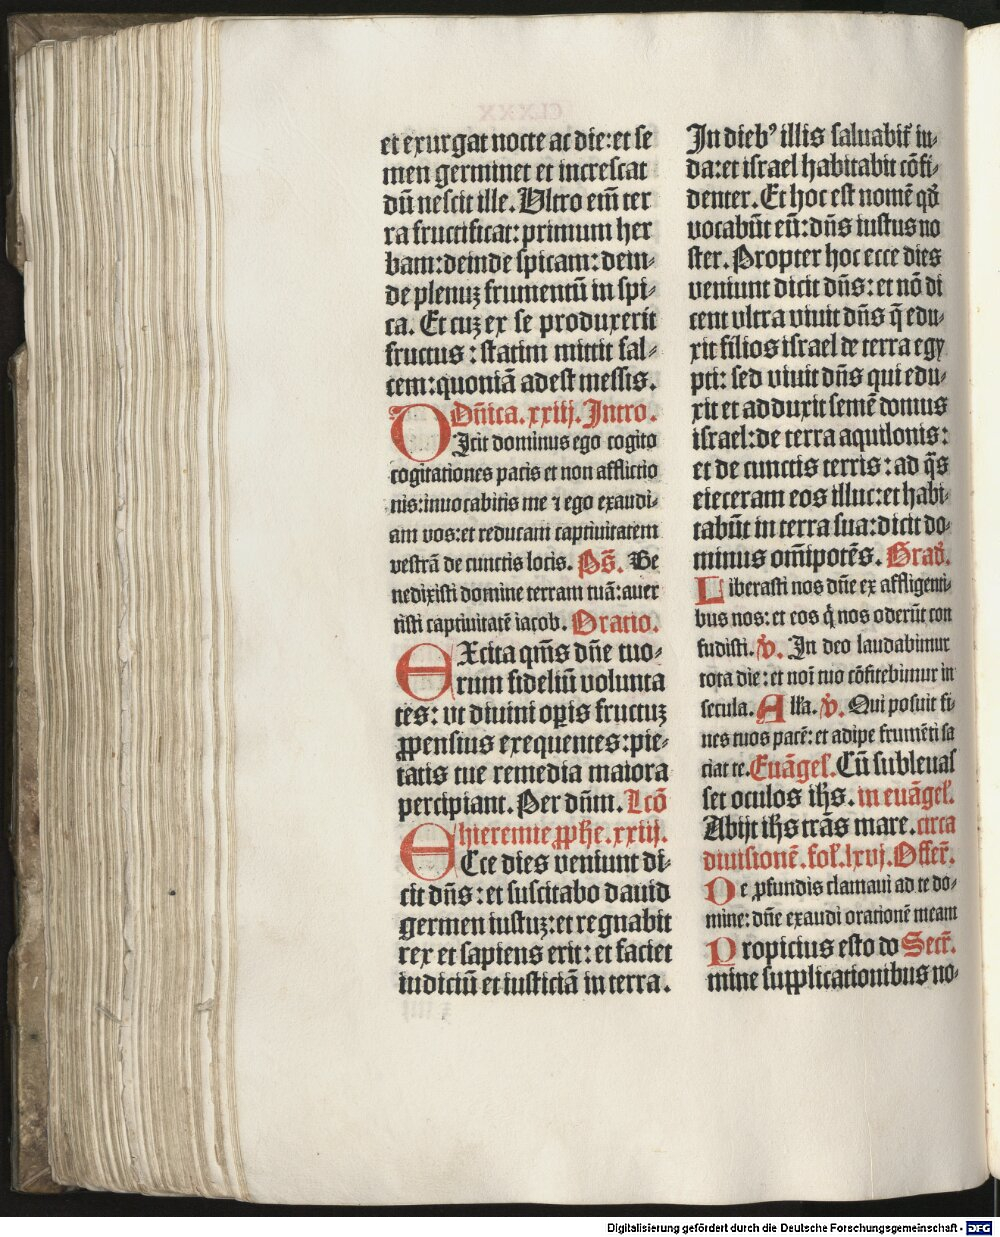 et exurgat nocte ac die: et se
men germinet et increscat
dū nescit ille. Ultro em̄ ter
ra fructificat: primum her
bam: deinde spicam: dein-
de plenuꝫ frumentū in spi-
ca. Et cuꝫ ex se produxerit
fructus: statim mittit fal-
cem: quoniā adest messis.
Dn̄ica. xxiij. Intro.
DIcit dominus ego cogito
cogitationes pacis et non afflictio
nis: inuocabitis me ⁊ ego exaudi-
am vos: et reducam captiuitatem
vestrā de cunctis locis. Ps̄. Be
nedixisti domine terram tuā: auer
tisti captiuitatē iacob. Oratio.
EXcita qm̄s dn̄e tuo-
rum fideliū volunta
tes: vt diuini oꝑis fructuꝫ
ꝓpensius exequentes: pie-
tatis tue remedia maiora
percipiant. Per dn̄m. Lcō
hieremie ꝓph̄e. xxiij.
ECce dies veniunt di-
cit dn̄s: et suscitabo dauid
germen iustuꝫ: et regnabit
rex et sapiens erit: et faciet
iudiciū et iusticiā in terra.
In dieb⁹ illis saluabit᷑ iu-
da: et israel habitabit cōfi-
denter. Et hoc est nomē qd̓
vocabūt eū: dn̄s iustus no
ster. Propter hoc ecce dies
veniunt dicit dn̄s: et nō di
cent vltra viuit dn̄s q̄ edu-
xit filios israel de terra egy
pti: sed viuit dn̄s qui edu-
xit et adduxit semē domus
israel: de terra aquilonis:
et de cunctis terris: ad q̄s
eieceram eos illuc: et habi-
tabūt in terra sua: dicit do-
minus om̄ipotēs. Grad̓.
Liberasti nos dn̄e ex affligenti-
bus nos: et eos q̇ nos oderūt con
fudisti. v̓. In deo laudabimur
tota die: et noī tuo cōfitebimur in
secula. Alľa. v̓. Qui posuit fi-
nes tuos pacē: et adipe frumēti sa
ciat te. Euāgeľ. Cū subleuas
set oculos ih̄s. in euāgeľ.
Abijt ih̄s trās mare. circa
diuisionē. foľ. lxvj. Offer̄.
De ꝓfundis clamaui ad te do-
mine: dn̄e exaudi orationē meam
Propicius esto do Secr̄.
mine supplicationibus no-
Digitalisierung gefördert durch die Deutsche Forschungsgemeinschaft - DFG